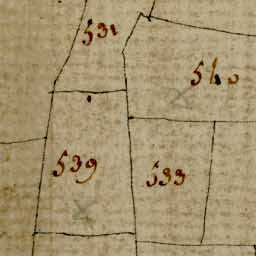 531
540
539
533